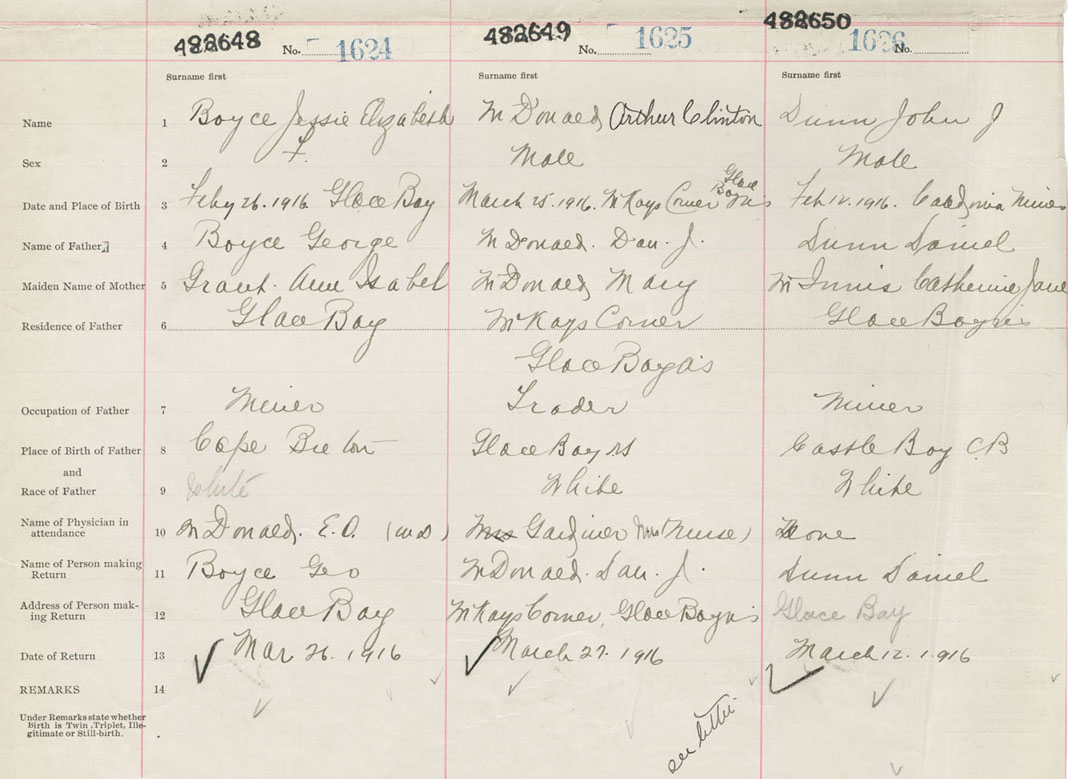 482648 No. 1624 482649 No. 1625 482650 1626 No.
Surname first Surname first Surname first
Name 1 Boyce Jessie Elizabeth McDonald Arthur Clinton Dunn John J
Sex 2 F Male Male
Glace
Date and Place of Birth 3 Feby 26. 1916 Glace Bay March 25. 1916. McKays Corner Bay NS Feb 12. 1916. Caledonia Mines
Name of Father 4 Boyce George McDonald. Dan. J. Dunn Daniel
Maiden Name of Mother 5 Grant. Ann Isabel McDonald Mary McInnis Catherine Jane
Residence of Father 6 Glace Bay McKays Corner Glace Bay NS
Glace Bay NS
Occupation of Father 7 Miner Trader Miner
Place of Birth of Father 8 Cape Breton Glace Bay NS Castle Bay C.B
and
Race of Father 9 White White White
Name of Physician in
attendance 10 McDonald. E.O. (MD) Mrs Gardiner (Nurse) None
Name of Person making
Return 11 Boyce Geo McDonald. Dan. J. Dunn Daniel
Address of Person mak-
ing Return 12 Glace Bay McKays Corner, Glace Bay NS Glace Bay
Date of Return 13 Mar 26. 1916 March 27. 1916 March 12. 1916
REMARKS 14
Under Remarks state whether
Birth is Twin, Triplet, Ille-
gitimate or Still-birth.
see letter